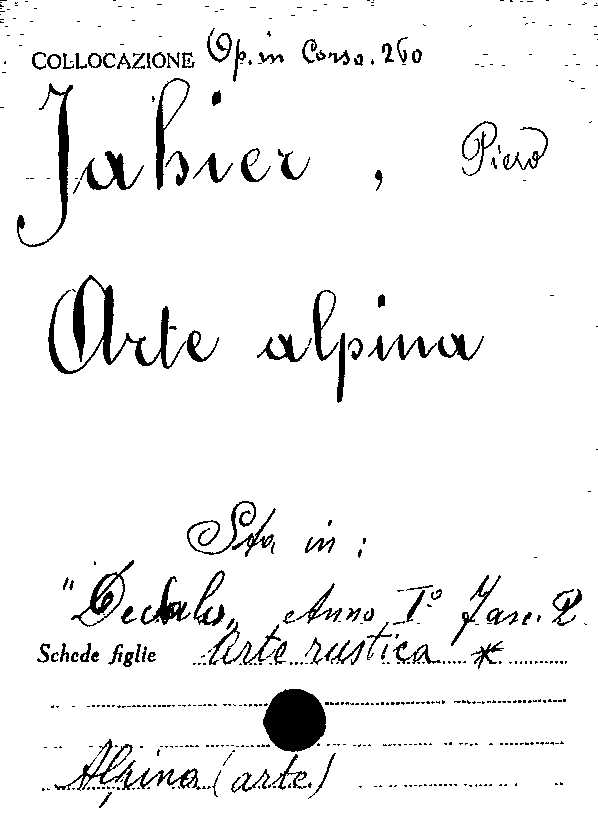 COLLOCAZIONE Op. in Corso. 260
Jahier, Piero
Arte alpina
Sta in:
"Dedalo„ Anno I° Fasc. 2
Schede figlie Arte rustica *
Alpina (arte)